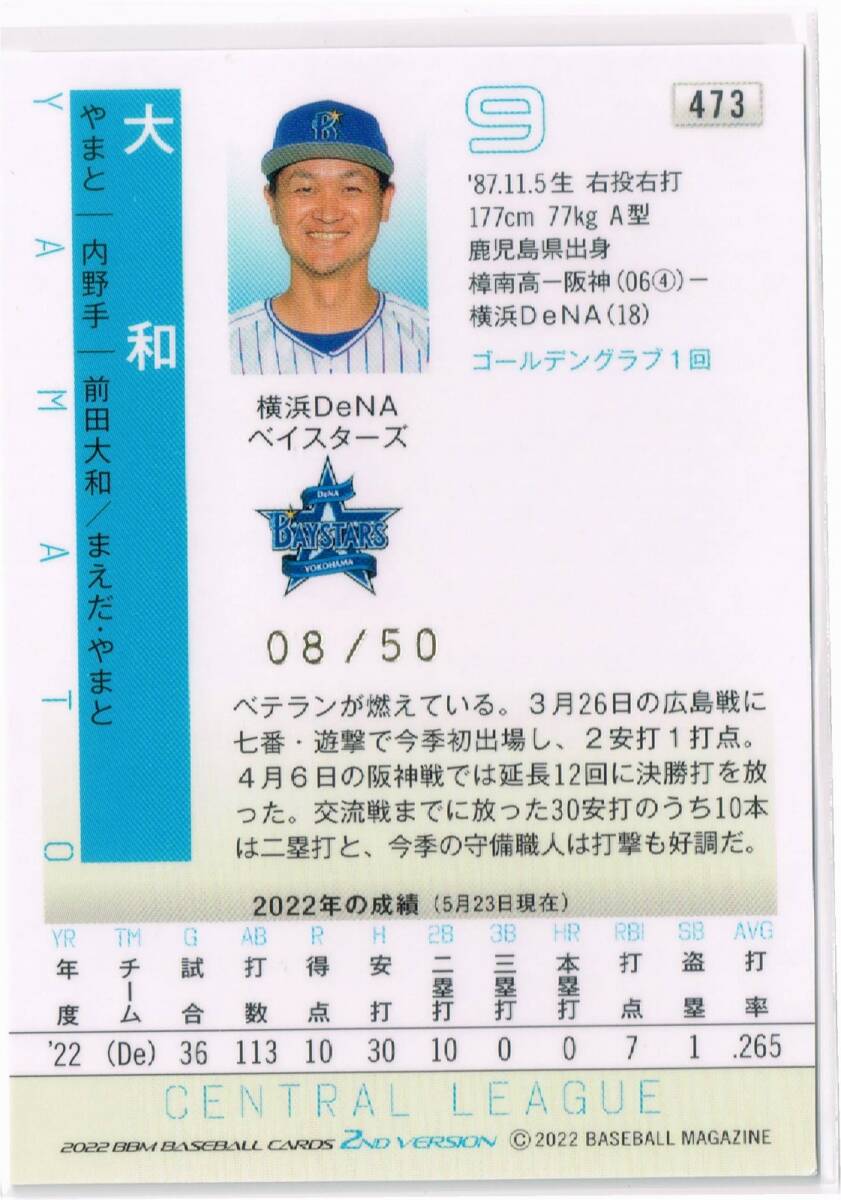 大和
やまと｜内野手｜前田大和／まえだ・やまと
YAMATO
B
9
473
'87.11.5生 右投右打
177cm 77kg A型
鹿児島県出身
樟南高ー阪神(06④)ー
横浜DeNA(18)
ゴールデングラブ1回
横浜DeNA
ベイスターズ
DeNA
BAYSTARS
YOKOHAMA
08/50
ベテランが燃えている。3月26日の広島戦に
七番・遊撃で今季初出場し、2安打1打点。
4月6日の阪神戦では延長12回に決勝打を放
った。交流戦までに放った30安打のうち10本
は二塁打と、今季の守備職人は打撃も好調だ。
2022年の成績(5月23日現在)
YR TM G AB R H 2B 3B HR RBI SB AVG
年度 チーム 試合 打数 得点 安打 二塁打 三塁打 本塁打 打点 盗塁 打率
'22 (De) 36 113 10 30 10 0 0 7 1 .265
CENTRAL LEAGUE
2022 BBM BASEBALL CARDS 2ND VERSION ©2022 BASEBALL MAGAZINE